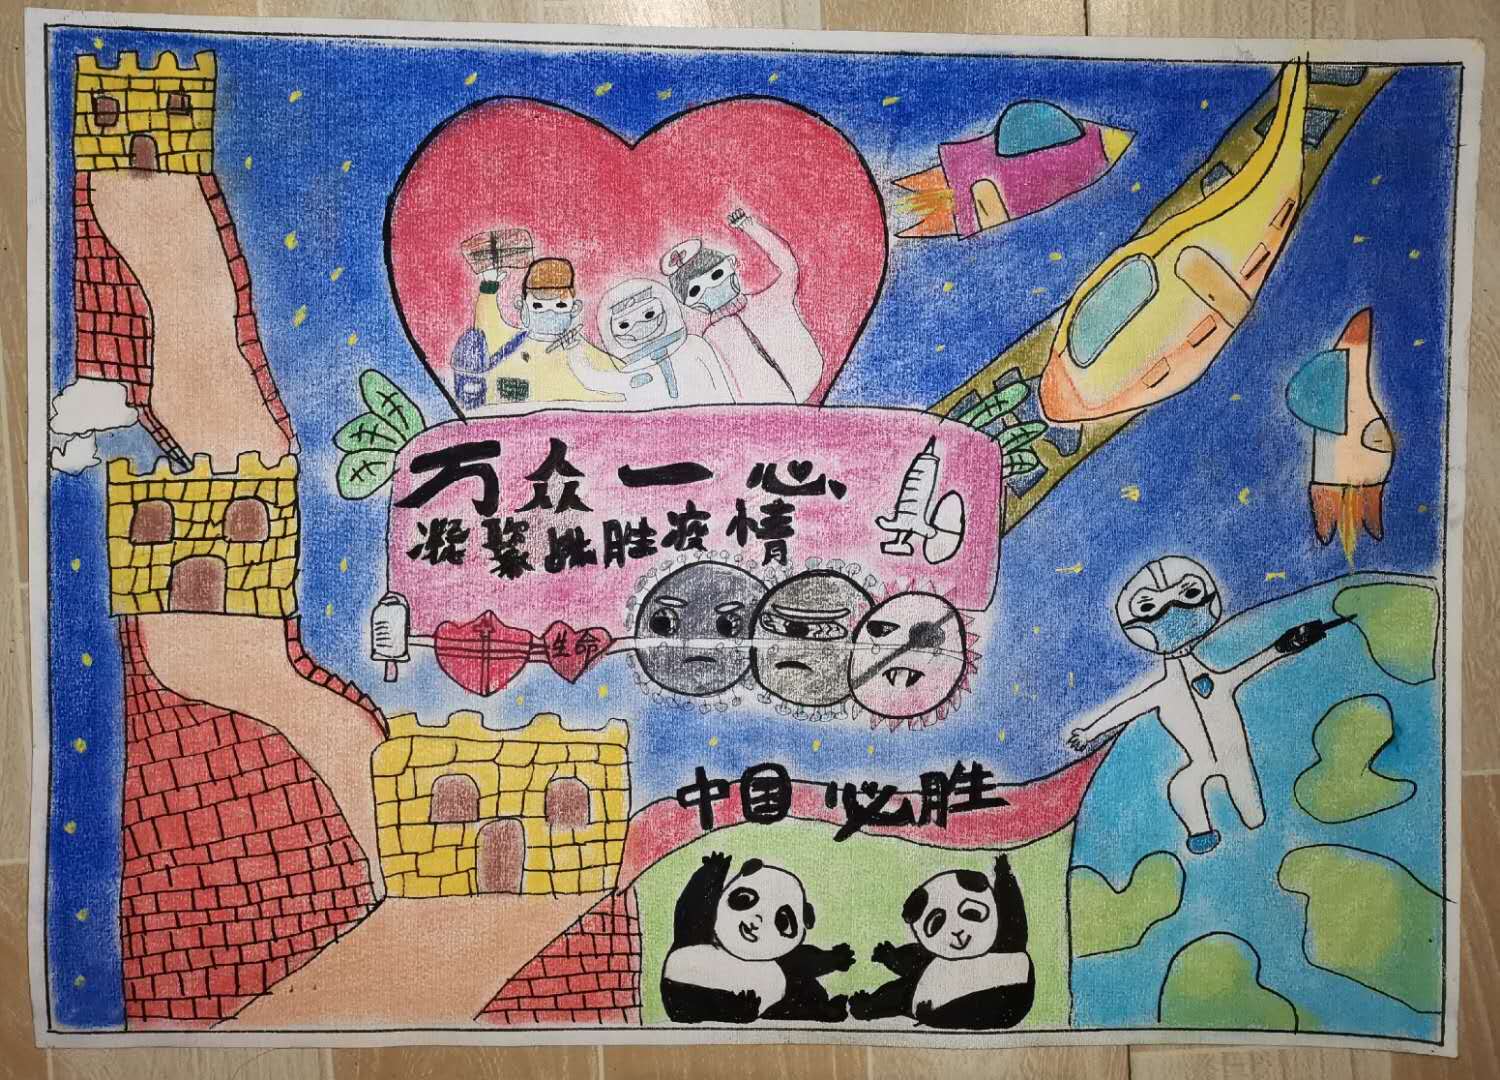 万众一心
凝聚战胜疫情
生命
中国必胜